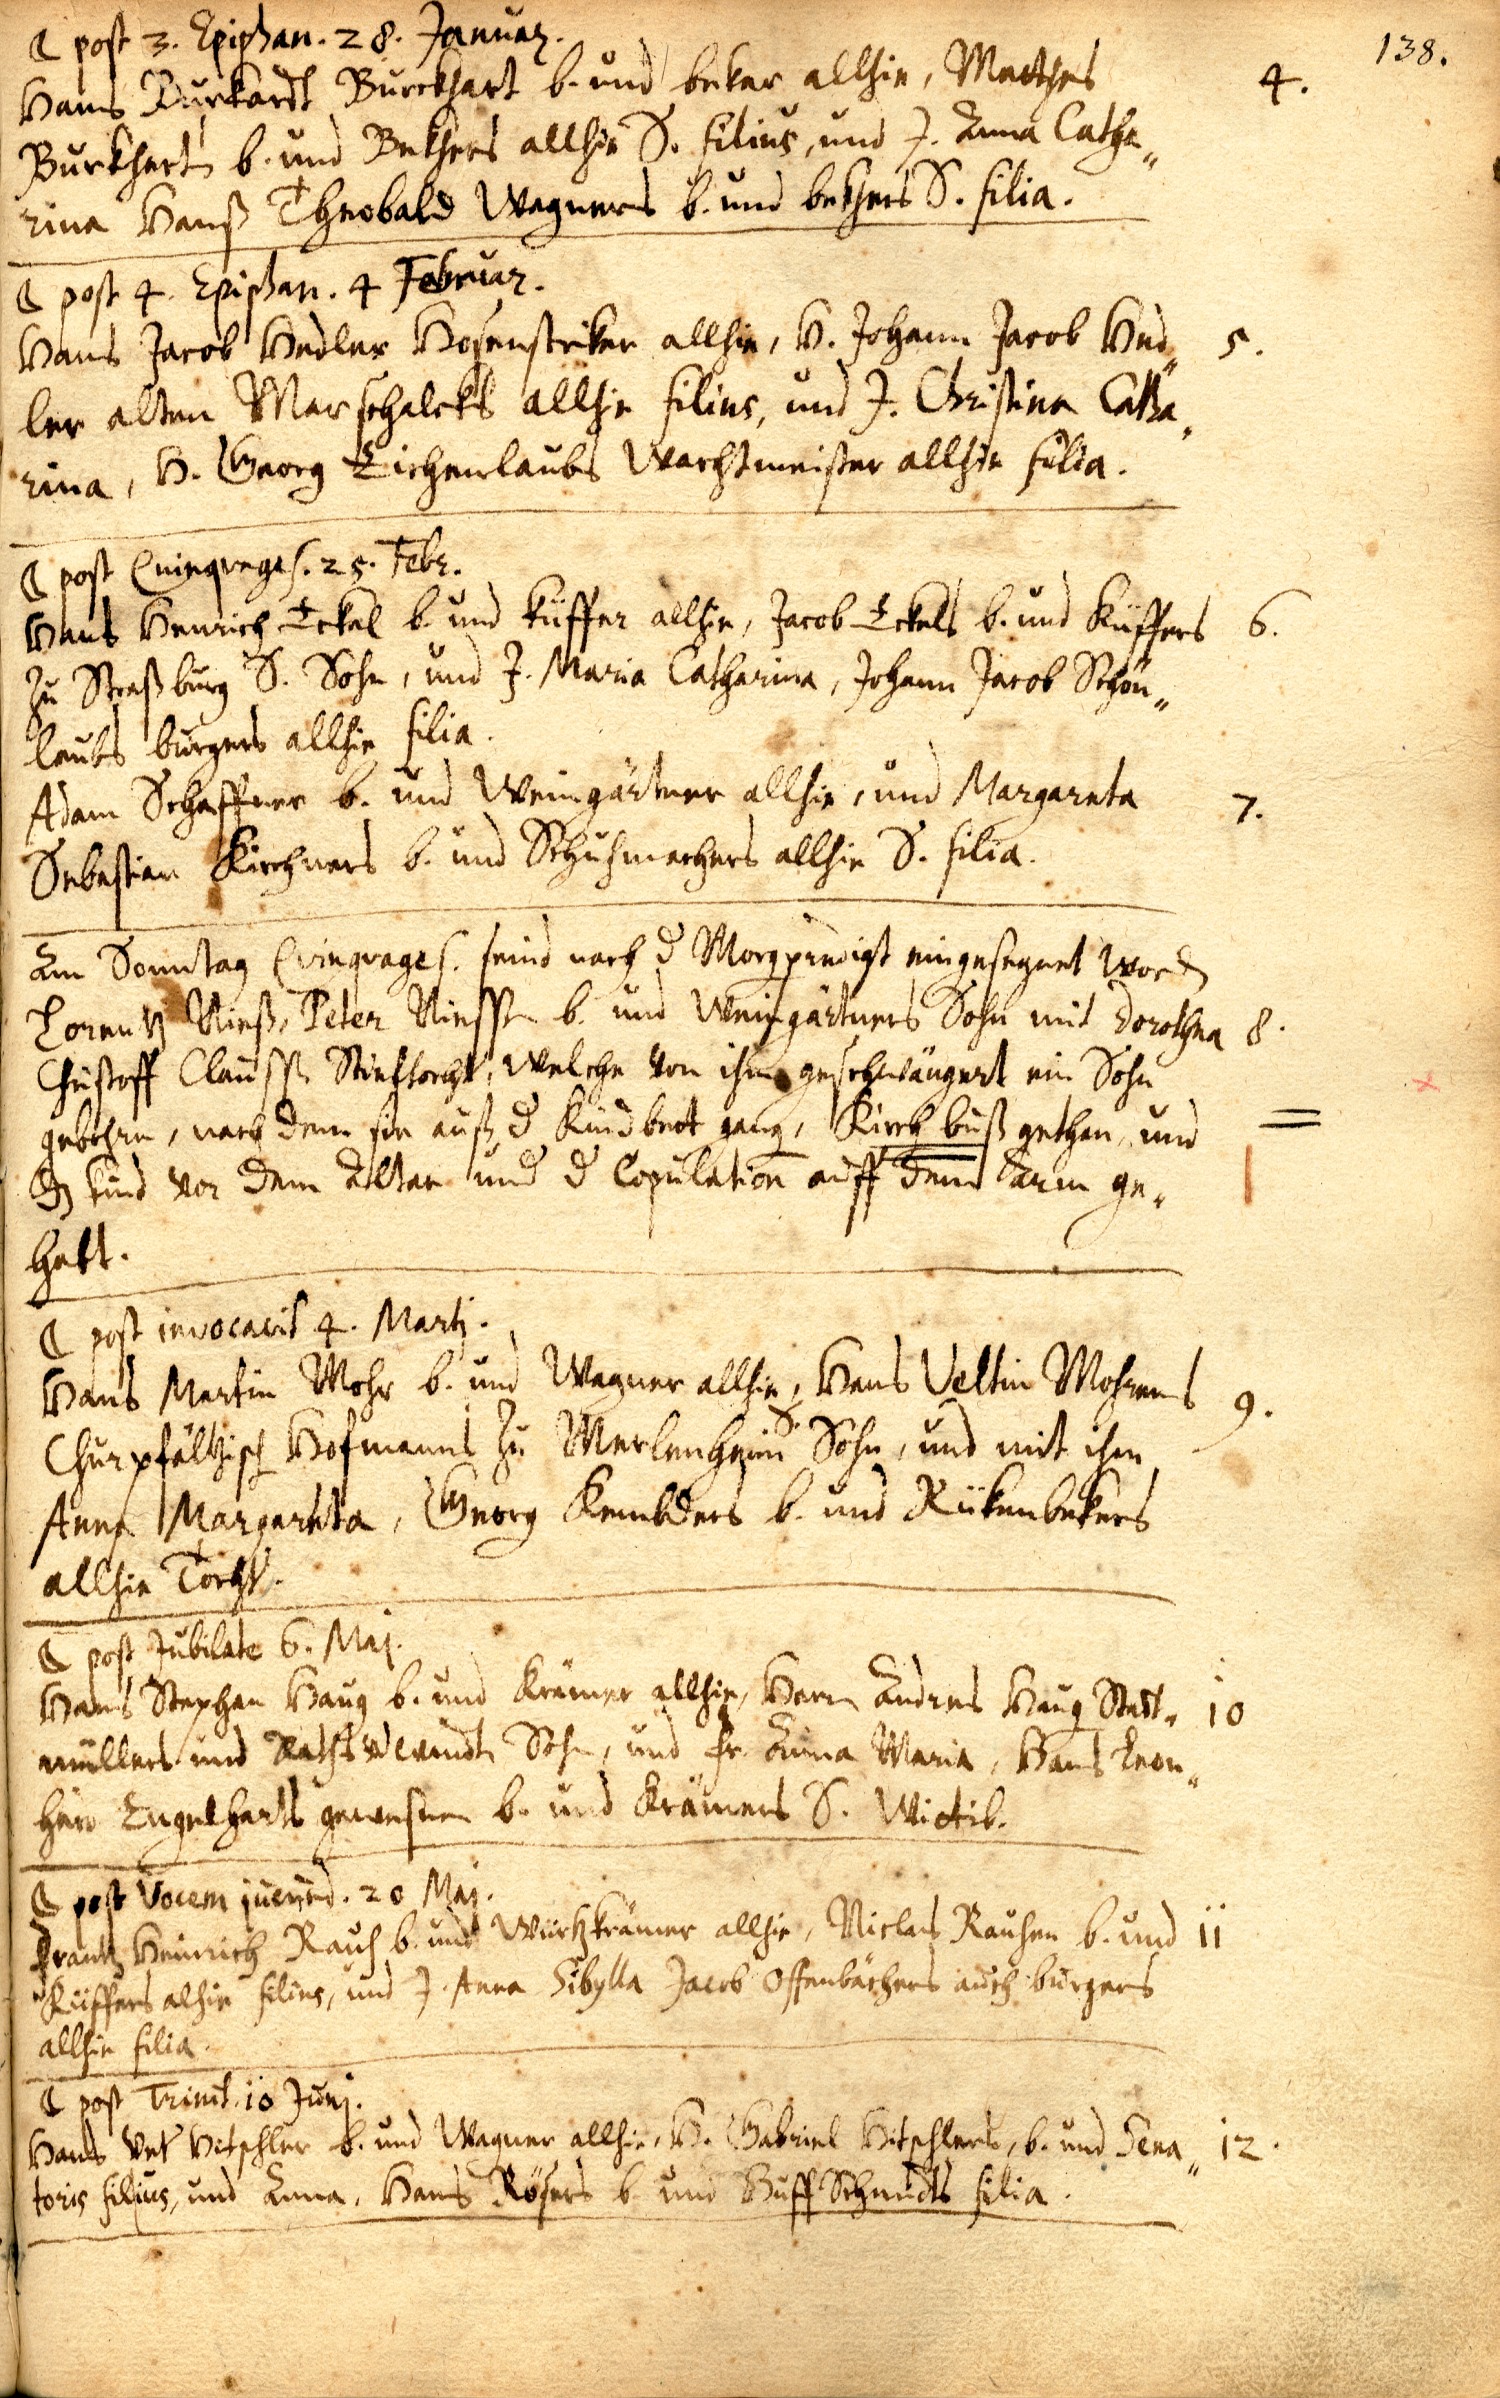 138.
☾ post 3. Epiphan. 28. Januar.
Hans Burkardt Burckhart b. und beker allhie, Matthes 4.
Burkhartß b. und Bekhers allhie S. filius, und J. Anna Catha„
rina Hanß Theobald Wagners b. und bekhers S. filia.
☾ post 4. Epiphan. 4 Februar.
Hans Jacob Hedler Hosenstriker allhie, H. Johann Jacob Hed„ 5.
ler alten Marschalcks allhie filius, und J. Christina Catha„
rina, H. Georg Eichenlaubs Wachtmeister allhie filia.
☾ post Quinquages. 25. Febr.
Hans Henrich Eckel b. und küffer allhie, Jacob Eckels b. und Küffers 6.
zu Straßburg S. Sohn, und J. Maria Catharina, Johann Jacob Schön„
laubs burgers allhie filia.
Adam Schaffner b. und Weingärtner allhie, und Margareta 7.
Sebastian Kirchners b. und Schuhmachers allhie S. filia.
Am Sonntag Quinquages. seind nach d Morgpredigt eingesegnet word
Lorentz Nieß, Peter Niessen b. und Weingärtners Sohn mit Dorothea 8.
Christoff Claussen Stieftocht, welche von ihm geschwängert ein Sohn
gebohrn, nach dem sie auß d Kindbett gang, Kirch buß gethan, und
dz kind vor dem Altar und d Copulation auff dem arm ge„
habt.
☾ post invocavit 4. Martj.
Hans Martin Mohr b. und Wagner allhie, Hans Veltin Mohrens 9.
Churpfältzisch Hofmanns zu Merlenheim S. Sohn, und mit ihm
Anna Margareta, Georg b. und Rükenbekers
allhie Tocht.
☾ post Jubilate 6. Maj.
Hans Stephan Haug b. und Krämer allhie, Herrn Andres Haug Statt„ 10
müllers und Rathsverwandt Sohn, und fr. Anna Maria, Hans Leon„
hard Engelharts gewesenen b. und Krämers S. Wittib.
☾ post Vocem jucund. 20 Maj.
Frantz Heinrich Rauh b. und Würtzkrämer allhie, Niclas Rauhen b. und 11
Küffers alhie filius, und J. Anna Sibylla Jacob Offenbächers auch burgers
allhie filia.
☾ post Trinit. 10 Junj.
Hans Hitschler b. und Wagner allhie, H. Gabriel Hitschlers, b. und Sena„ 12.
toris filius, und Anna, Hans Rösers b. und Huff Schmidts filia.